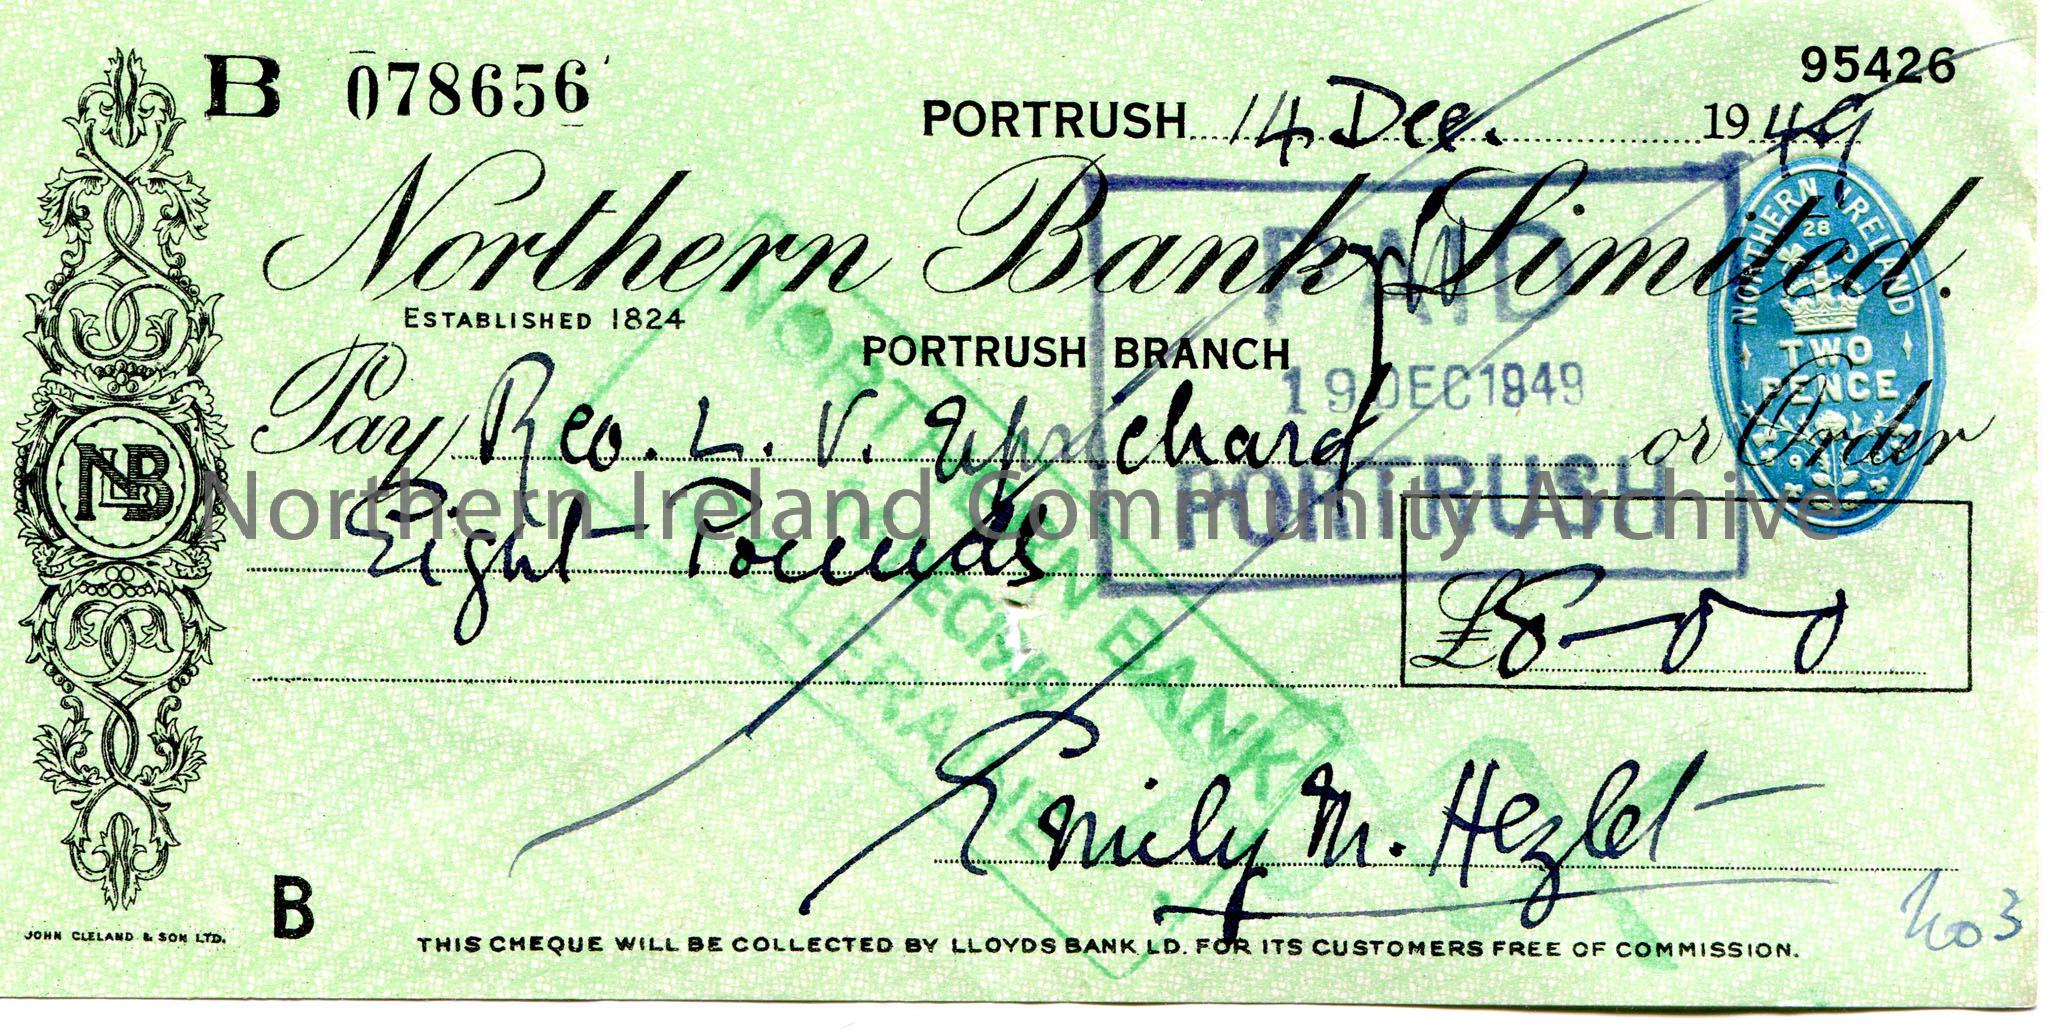 B 078656
95426
PORTRUSH 14 Dec. 1949
Northern Bank Limited.
ESTABLISHED 1824
PORTRUSH BRANCH
NORTHERN IRELAND
28
TWO
PENCE
PAID
19 DEC 1949
PORTRUSH
Pay Rev. L. V. Uprichard or Order
Northern Ireland Community Archive
Eight Pounds
£8-0-0
NORTHERN BANK
DEC 1949
COLERAINE
NBL
Emily M. Hezlet
B
No 3
JOHN CLELAND & SON LTD.
THIS CHEQUE WILL BE COLLECTED BY LLOYDS BANK LD. FOR ITS CUSTOMERS FREE OF COMMISSION.